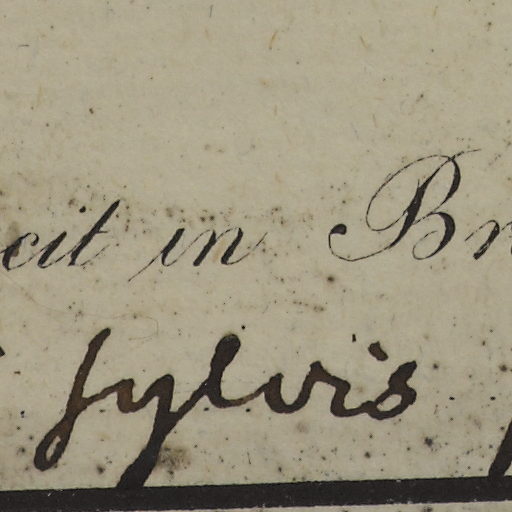 cit in Br
sylvis